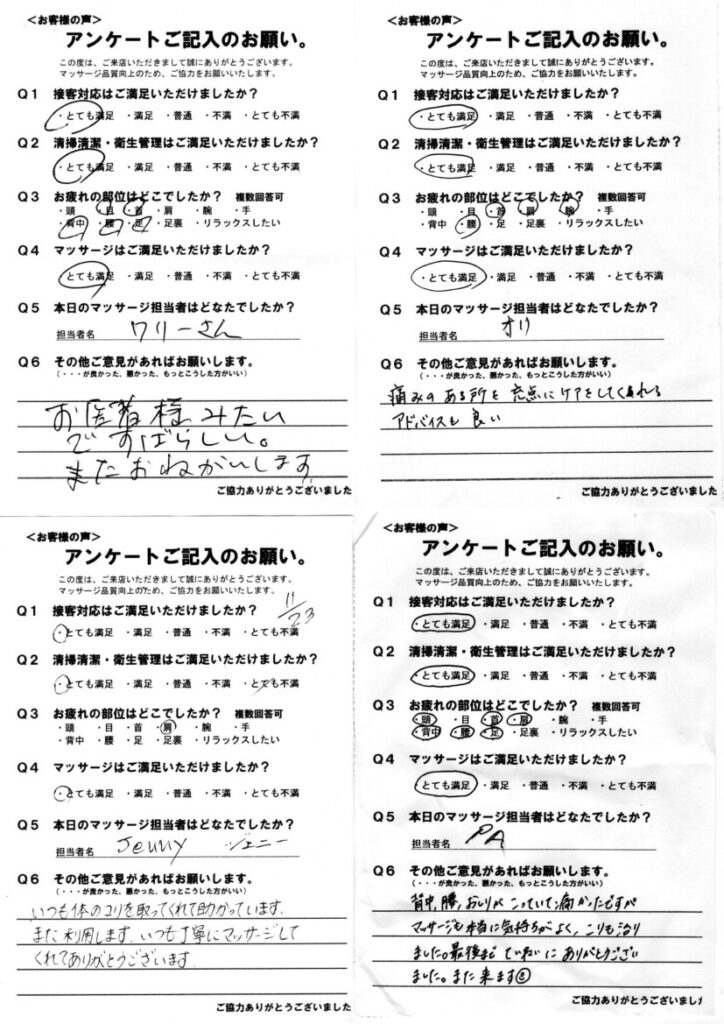 ＜お客様の声＞
アンケートご記入のお願い。
この度は、ご来店いただきまして誠にありがとうございます。
マッサージ品質向上のため、ご協力をお願いいたします。
Q1 接客対応はご満足いただけましたか？
・とても満足 ・満足 ・普通 ・不満 ・とても不満
Q2 清掃清潔・衛生管理はご満足いただけましたか？
・とても満足 ・満足 ・普通 ・不満 ・とても不満
Q3 お疲れの部位はどこでしたか？ 複数回答可
・頭 ・目 ・首 ・肩 ・腕 ・手
・背中 ・腰 ・足 ・足裏 ・リラックスしたい
Q4 マッサージはご満足いただけましたか？
・とても満足 ・満足 ・普通 ・不満 ・とても不満
Q5 本日のマッサージ担当者はどなたでしたか？
担当者名 ワリーさん
Q6 その他ご意見があればお願いします。
（・・・が良かった、悪かった、もっとこうした方がいい）
お医者様みたい
ですばらしい。
またおねがいします
ご協力ありがとうございました
＜お客様の声＞
アンケートご記入のお願い。
この度は、ご来店いただきまして誠にありがとうございます。
マッサージ品質向上のため、ご協力をお願いいたします。
Q1 接客対応はご満足いただけましたか？
・とても満足 ・満足 ・普通 ・不満 ・とても不満
Q2 清掃清潔・衛生管理はご満足いただけましたか？
・とても満足 ・満足 ・普通 ・不満 ・とても不満
Q3 お疲れの部位はどこでしたか？ 複数回答可
・頭 ・目 ・首 ・肩 ・腕 ・手
・背中 ・腰 ・足 ・足裏 ・リラックスしたい
Q4 マッサージはご満足いただけましたか？
・とても満足 ・満足 ・普通 ・不満 ・とても不満
Q5 本日のマッサージ担当者はどなたでしたか？
担当者名 オリ
Q6 その他ご意見があればお願いします。
（・・・が良かった、悪かった、もっとこうした方がいい）
痛みのある所を 点にケアをしてくれる
アドバイスも良い
ご協力ありがとうございました
＜お客様の声＞
アンケートご記入のお願い。
この度は、ご来店いただきまして誠にありがとうございます。
マッサージ品質向上のため、ご協力をお願いいたします。
11/23
Q1 接客対応はご満足いただけましたか？
・とても満足 ・満足 ・普通 ・不満 ・とても不満
Q2 清掃清潔・衛生管理はご満足いただけましたか？
・とても満足 ・満足 ・普通 ・不満 ・とても不満
Q3 お疲れの部位はどこでしたか？ 複数回答可
・頭 ・目 ・首 ・肩 ・腕 ・手
・背中 ・腰 ・足 ・足裏 ・リラックスしたい
Q4 マッサージはご満足いただけましたか？
・とても満足 ・満足 ・普通 ・不満 ・とても不満
Q5 本日のマッサージ担当者はどなたでしたか？
担当者名 Jenny ジェニー
Q6 その他ご意見があればお願いします。
（・・・が良かった、悪かった、もっとこうした方がいい）
いつも体のコリを取ってくれて助かっています.
また利用します. いつも丁寧にマッサージして
くれてありがとうございます.
ご協力ありがとうございました
＜お客様の声＞
アンケートご記入のお願い。
この度は、ご来店いただきまして誠にありがとうございます。
マッサージ品質向上のため、ご協力をお願いいたします。
Q1 接客対応はご満足いただけましたか？
・とても満足 ・満足 ・普通 ・不満 ・とても不満
Q2 清掃清潔・衛生管理はご満足いただけましたか？
・とても満足 ・満足 ・普通 ・不満 ・とても不満
Q3 お疲れの部位はどこでしたか？ 複数回答可
・頭 ・目 ・首 ・肩 ・腕 ・手
・背中 ・腰 ・足 ・足裏 ・リラックスしたい
Q4 マッサージはご満足いただけましたか？
・とても満足 ・満足 ・普通 ・不満 ・とても不満
Q5 本日のマッサージ担当者はどなたでしたか？
担当者名 PA
Q6 その他ご意見があればお願いします。
（・・・が良かった、悪かった、もっとこうした方がいい）
背中, 腰, おしりが こっていて痛かったですが
マッサージも本当に気持ちがよく, こりも治り
ました。最後まで ていねいに ありがとうござい
ました。また来ます☺
ご協力ありがとうございまし